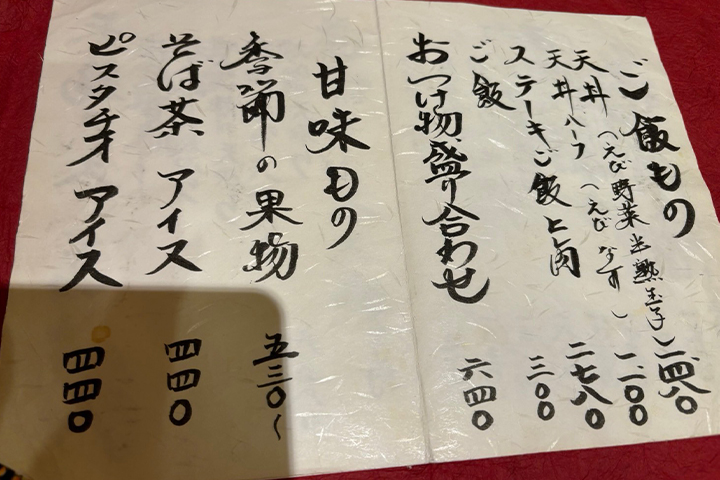 ご飯もの
天丼（えび野菜半熟玉子）二、四八〇
天丼ハーフ（えび なす）一、一〇〇
ステーキご飯上肉 二、七八〇
ご飯 三〇〇
おつけ物盛り合わせ 六四〇
甘味もの
季節の果物 五三〇〜
そば茶 アイス 四四〇
ピスタチオ アイス 四四〇